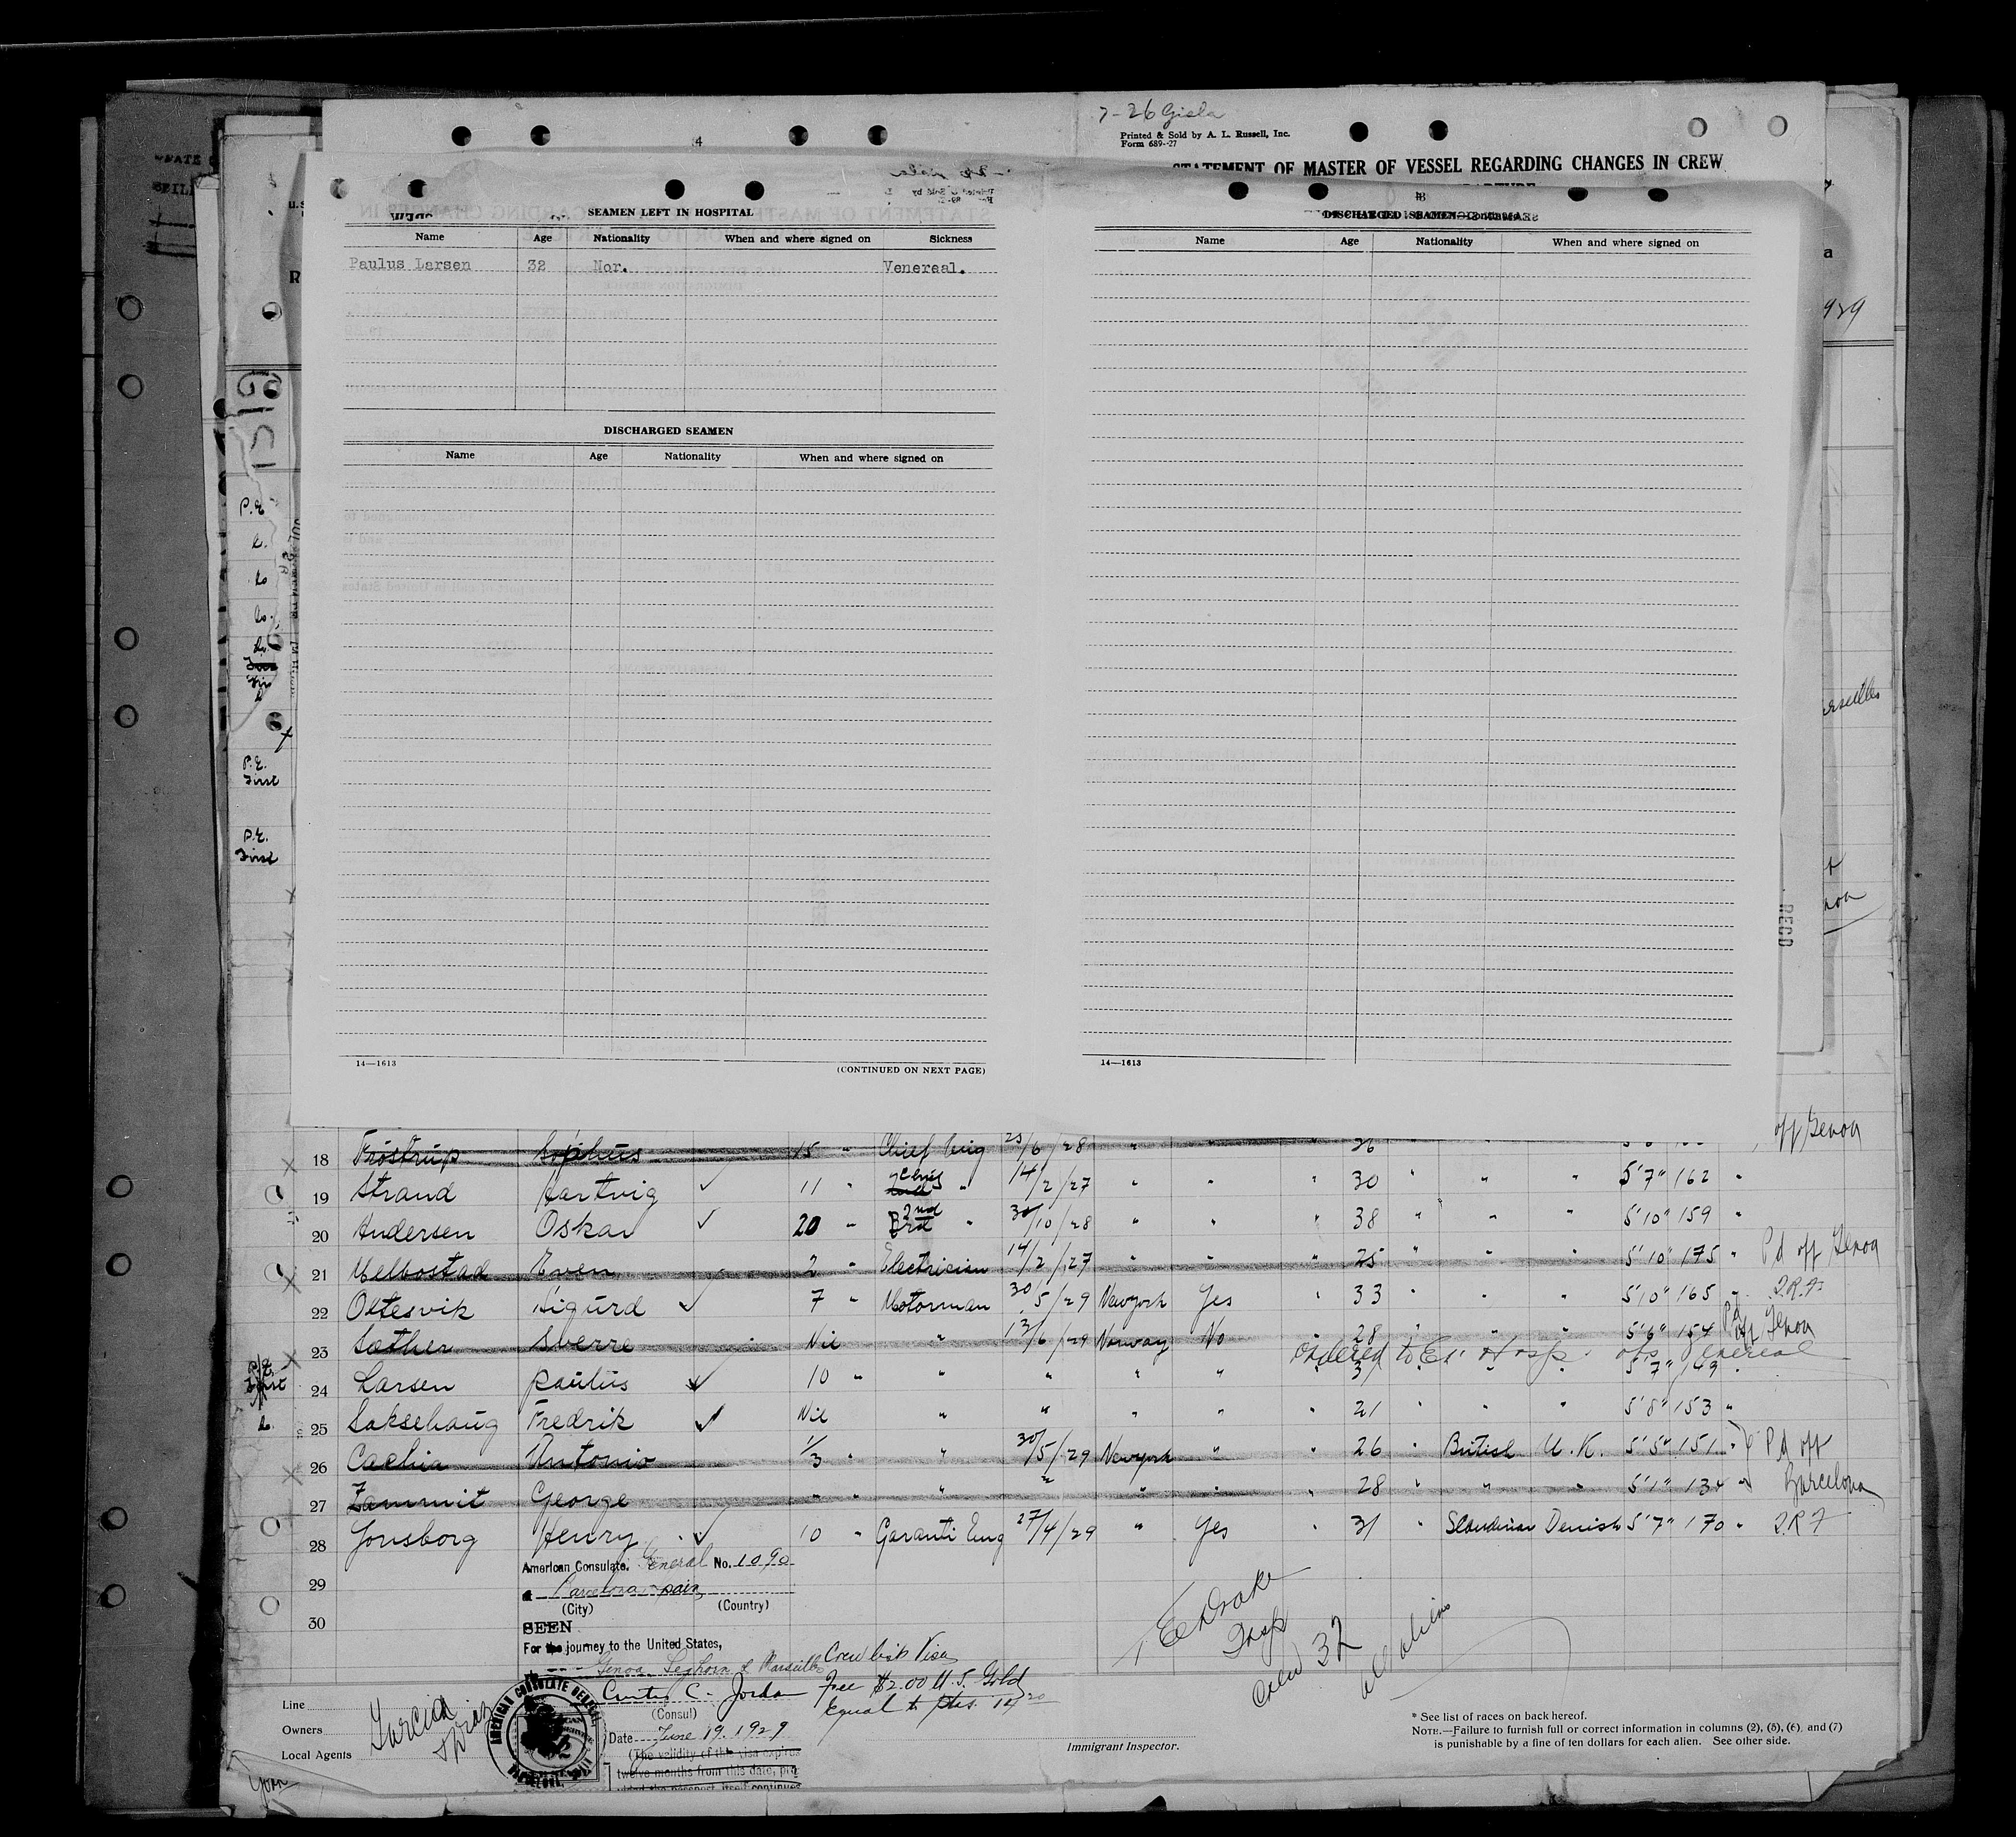 7-26 Gisla
Printed & Sold by A. L. Russell, Inc.
Form 689--27
4
STATEMENT OF MASTER OF VESSEL REGARDING CHANGES IN CREW
SEAMEN LEFT IN HOSPITAL
Name Age Nationality When and where signed on Sickness
Paulus Larsen 32 Nor. Venereal.
DISCHARGED SEAMEN
Name Age Nationality When and where signed on
14—1613
(CONTINUED ON NEXT PAGE)
DISCHARGED SEAMEN—Continued
Name Age Nationality When and where signed on
14—1613
RECD
P.E.
P.E. First
P.E. First
off Genoa
18 Trostrup Sophus 15 " Chief Eng 25/6/28 " " " 26
19 Strand Hartvig 11 " Chief " 14/2/27 " " " 30 " " " 5'7" 162 "
20 Andersen Oskar 20 " 2nd 3rd " 30/10/28 " " " 38 " " " 5'10" 159 "
21 Melbostad Even 2 " Electrician 14/2/27 " " " 25 " " " 5'10" 175 " Pd off Genoa
22 Ottesvik Sigurd 7 " Motorman 30/5/29 Newyork Yes " 33 " " " 5'10" 165 "
23 Sæther Sverre Nil " 13/6/29 Norway No " 28 " " " 5'6" 154 Pd off Genoa
Ordered to Hosp. Venereal
24 Larsen Paulus 10 " " " " " " 31 " " " 5'7" 149 "
25 Saksehaug Fredrik Nil " " " " " 21 " " " 5'8" 153 "
26 Cachia Antonio 1/3 " " 30/5/29 Newyork " " 26 " British U.K. 5'5" 151 " Pd off
27 Zammit George " " " " " " " 28 " " " 5'1" 134 " Barcelona
28 Jonsborg Henry 10 " Garanti Eng 27/4/29 " Yes " 31 " Scandinav Danish 5'7" 170 "
29
30
American Consulate General No. 1090
Barcelona Spain
(City) (Country)
SEEN
For the journey to the United States,
Genoa, Leghorn & Marseilles
Crew list Visa
Curtis C. Jordan
(Consul)
Fee $2.00 U.S. Gold
Equal to ptas. 14.20
Date June 19. 1929
(The validity of this visa expires
twelve months from this date, pro-
vided the passport itself continues
AMERICAN CONSULATE GENERAL
Line
Owners
Local Agents
Garcia & Diaz
E Drake
Insp
Crew 32
Immigrant Inspector.
* See list of races on back hereof.
NOTE.—Failure to furnish full or correct information in columns (2), (5), (6), and (7)
is punishable by a fine of ten dollars for each alien. See other side.